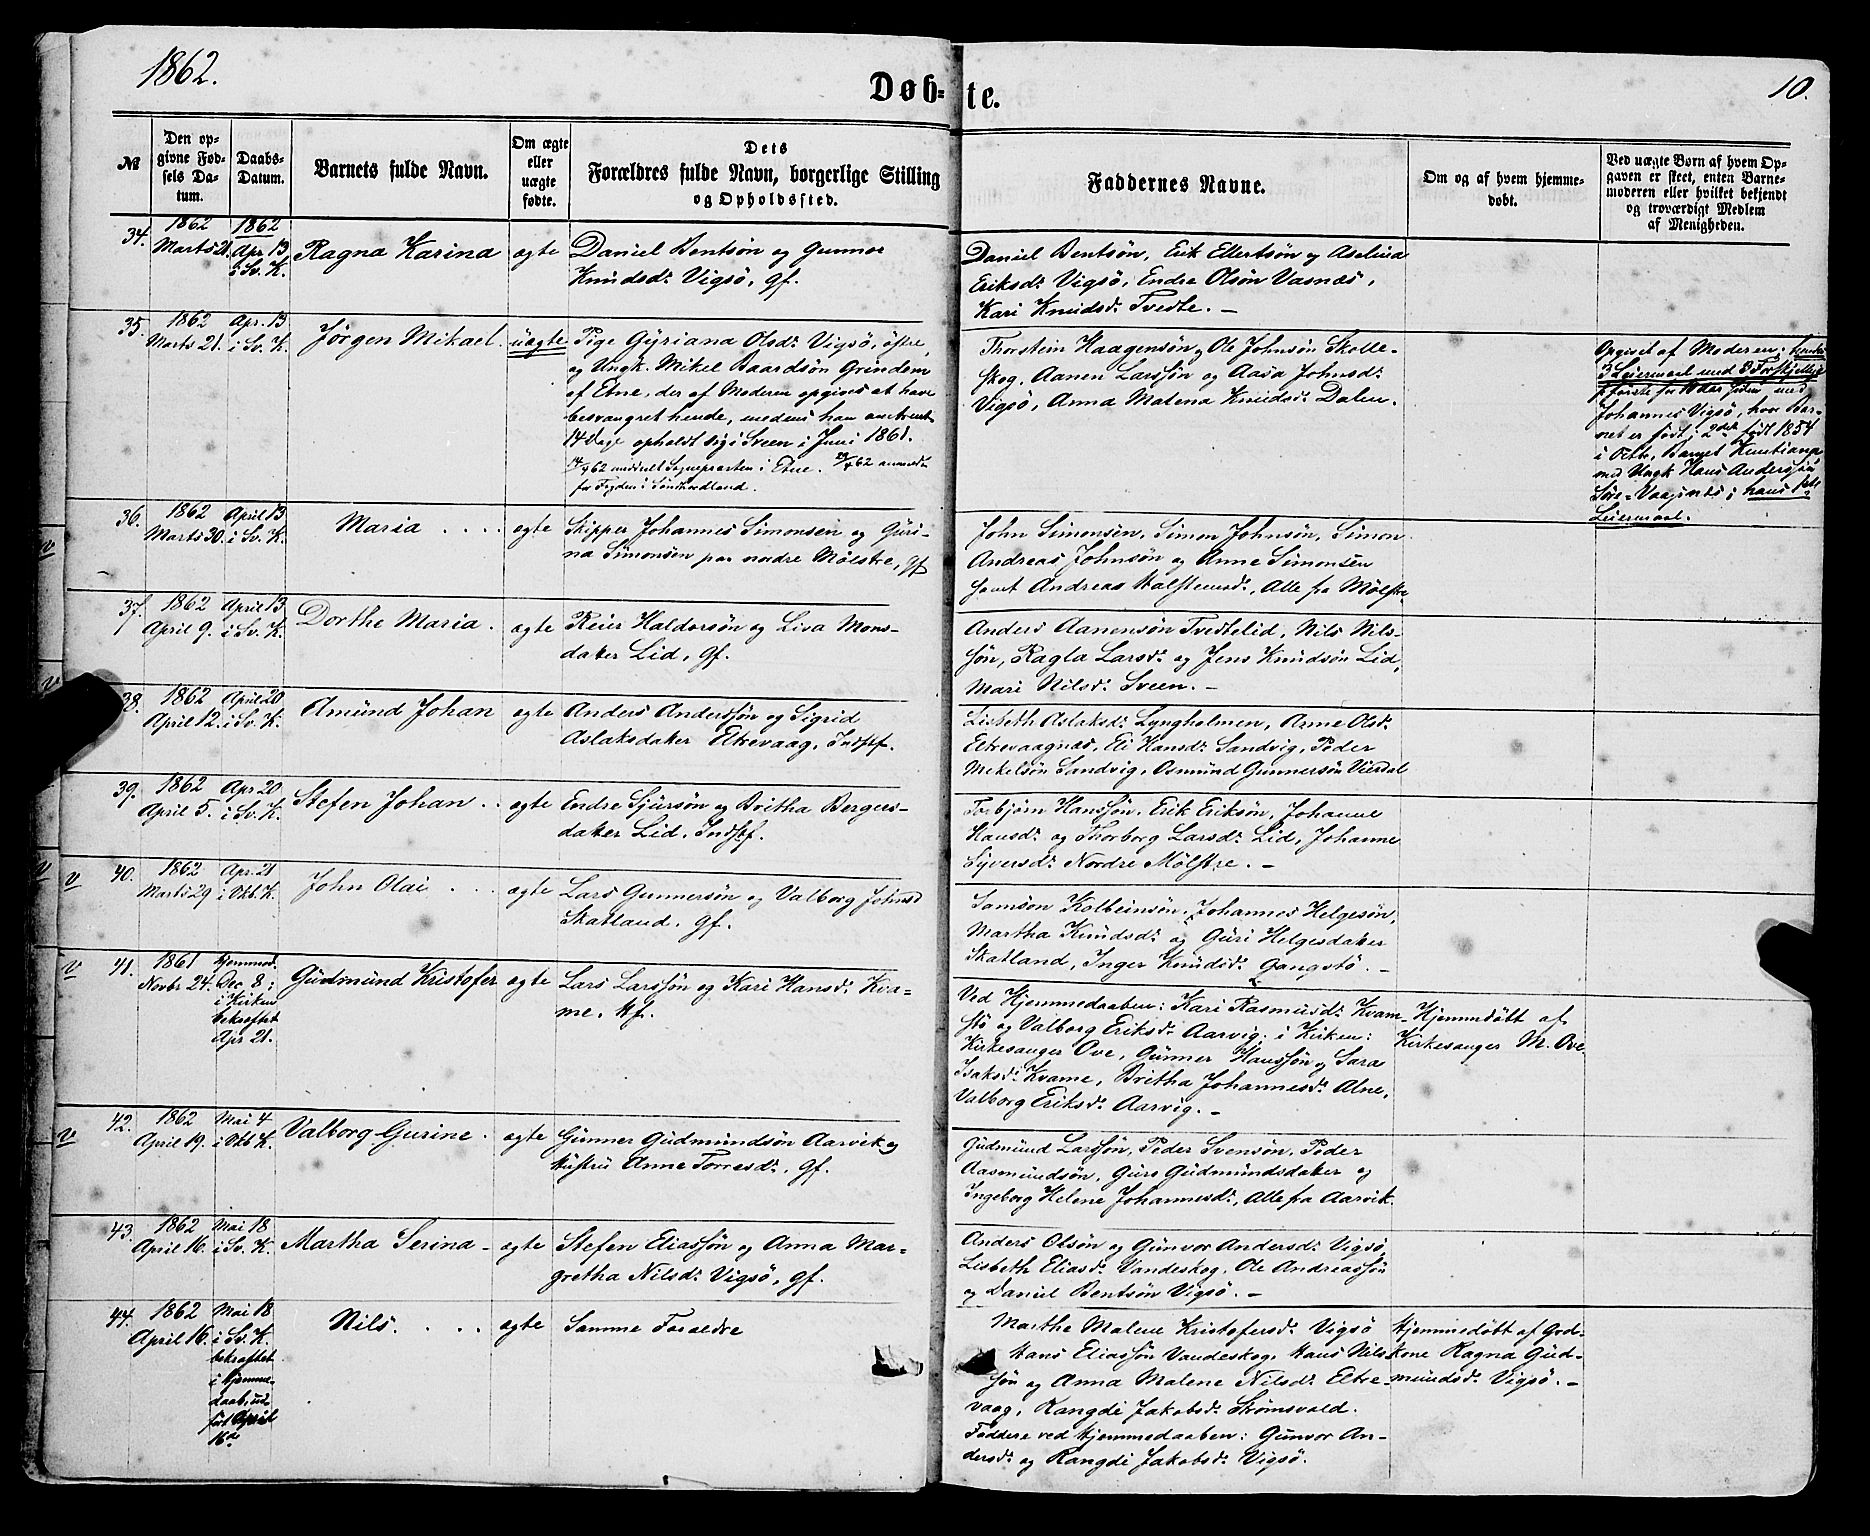 1862.
Døb-te.
10.
№
Den opgivne Fødsels Datum.
Daabs-Datum.
Barnets fulde Navn.
Om ægte eller uægte fødte.
Dets Forældres fulde Navn, borgerlige Stilling og Opholdssted.
Faddernes Navne.
Om og af hvem hjemmedøbt.
Ved uægte Børn af hvem Opgaven er skeet, enten Barnemoderen eller hvilket bekjendt og troværdigt Medlem af Menigheden.
34.
1862
Marts 21.
1862
Apr. 13
i Sv. K.
Ragna Karina
ægte
Daniel Bentsøn og Gunnor
Knudsdr. Vigsö, gf.
Daniel Bentsøn, Erik Ellertsøn og Aselina
Eriksdr. Vigsö, Endre Olsøn Vasnæs,
Kari Knudsdr. Tvedte. —
35.
1862
Marts 21.
Apr. 13
i Sv. K.
Jørgen Mikael.
uægte
Pige Gyriana Olsdr. Vigsö, östre,
og Ungk. Mikel Baardsøn Grindem
af Etne, der af Moderen opgives at have
besvangret hende, medens han omtrent
14 Dage opholdt sig i Sveen i Juni 1861.
meddelt Sognepræsten i Etne.
Fogden i Søndhordland.
Thorstein Haagensøn, Ole Johnsøn Skolle-
skog, Aanen Larssøn og Aasa Johnsdr.
Vigsö, Anna Malena Knudsdr. Dalen.
Opgivet af Moderen; hendes
3 Leiermaal med 3 Forskjellige
første for 10 Aar siden med
Johannes Vigsö, hvor Bar-
net er født; 2det født 1854
i Octbr, Barnet Kristiane
med Ungk Hans Anderssøn
Søre-Vaagsnes; hans 1ste
Leiermaal.
36.
1862
Marts 30.
April 13
i Sv. K.
Maria . . . .
ægte
Skipper Johannes Simonsen og Guri-
na Simonsen paa nordre Mölstre, gf
John Simonsen, Simon Johnsøn, Simon
Andreas Johnsøn og Anne Simonsen
samt Andreas Halstensdr., Alle fra Mölstre
37.
1862
April 9.
April 13
i Sv. K.
Dorthe Maria.
ægte
Reier Haldorsøn og Liva Mons-
datter Lid, gf.
Anders Aanensøn Tvedtelid, Nils Nils-
søn, Ragla Larsdr. og Jens Knudsøn Lid,
Mari Nilsdr. Sveen. —
38.
1862
April 12.
April 20
i Sv. K.
Amund Johan
ægte
Anders Anderssøn og Sigrid
Aslaksdatter Eltrevaag, Indstf.
Lisbeth Aslaksdr. Lyngholmen, Anne Olsdr.
Eltrevaagnæs, Eli Hansdr. Sandvig, Peder
Mikelsøn Sandvig, Osmund Gunnersøn Vierdal
39.
1862
April 5.
Apr 20
i Sv. K.
Stefen Johan . .
ægte
Endre Sjursøn og Britha Bergers-
datter Lid, Indstf.
Torbjørn Hanssøn, Erik Eriksøn, Johanne
Hansdr. og Thorborg Larsdr. Lid, Johanne
Syversdr. Nordre Mölstre. —
v
40.
1862
Marts 29
Apr. 21
i Vkb. K.
John Olai . . .
ægte
Lars Gunnersøn og Valborg Johnsd
Skatland, gf.
Samson Kolbeinsøn, Johannes Helgesøn,
Martha Knudsdr. og Guri Helgesdatter
Skatland, Inger Knudsdr. Gangstö. —
v
41.
1861
Novbr 24.
Hjemmed.
Dec. 8;
i Kirken
bekræftet
Apr 21.
Gudmund Kristofer
ægte
Lars Larssøn og Kari Hansdr. Kva-
me, Hf.
Ved Hjemmedaaben: Kari Rasmusdr. Kvam-
stö og Valborg Eriksdr. Aarvig; i Kirken:
Kirkesanger Ove, Gunner Hanssøn, Sara
Isaksdr. Kvame, Britha Johannesdr. Alne,
Valborg Eriksdr. Aarvig. —
Hjemmedöbt af
Kirkesanger M. Ove.
v
42.
1862
April 19.
Mai 4
i Vkb K.
Valborg Gurine.
ægte
Gunner Gudmundsøn Aarvik og
Hustru Anne Torresdr., gf.
Gudmund Larssøn, Peder Svensøn, Peder
Aasmundsøn, Guro Gudmundsdatter og
Ingeborg Helene Johannesdr., Alle fra Aarvik.
43.
1862
April 16.
Mai 18
i Sv. K.
Martha Serina -
ægte
Stefen Eliassøn og Anna Mar-
gretha Nilsdr. Vigsö, gf.
Anders Olsøn og Gunvor Andersdr. Vigsö,
Lisbeth Eliasdr. Vandeskog, Ole Andreassøn
og Daniel Bentsøn Vigsö. —
44.
1862
April 16.
Mai 18
i Sv. K.
bekræftet
i Hjemme-
daab, ud-
ført April
16de
Nils. . . .
ægte
Samme Forældre
Marthe Malene Kristofersdr. Vigsö
Hans Eliassøn Vandeskog, Hans Nils-
søn og Anna Malene Nilsdr. Eltre-
vaag, Rangdi Jakobsdr. Strömsvold.
Faddere ved Hjemmedaaben: Gunvor An-
dersdr. og Rangdi Jakobsdr. Vigsö.
Hjemmedöbt af Jord-
kone Ragna Gud-
mundsdr. Vigsö. —